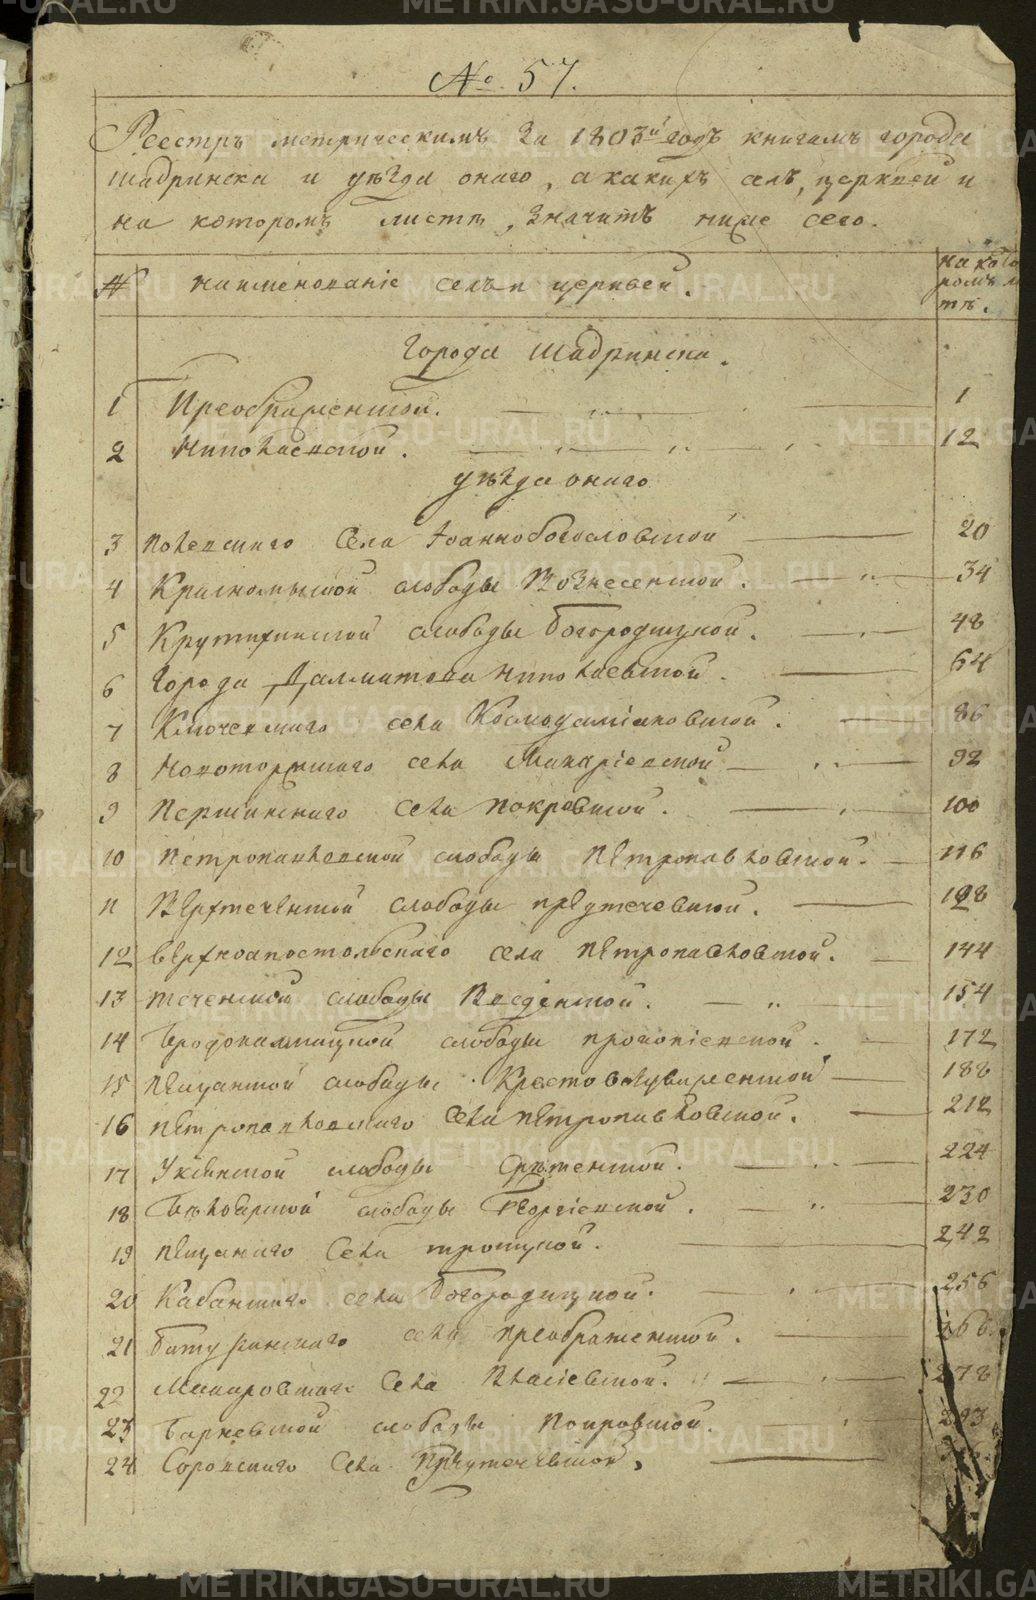 № 57.
Реестръ метрическимъ за 1803й годъ книгамъ города
Шадринска и уѣзда онаго, а какихъ селъ, церквей и
на которомъ листѣ, значитъ ниже сего.
№ Наименованіе селъ и церквей. На которомъ листѣ.
Города Шадринска.
1 Преображенской. 1
2 Николаевской. 12
уѣзда онаго
3 Полевскаго Села Іоаннобогословской 20
4 Красномыской слободы Вознесенской. 34
5 Крутихинской слободы Богородицкой. 48
6 Города Далматова Николаевской. 64
7 Ключевскаго села Космодаміановской. 86
8 Новоторжскаго села Макаріевской 92
9 Першинскаго села Покровской. 100
10 Петропавловской слободы Петропавловской. 116
11 Верхтеченской слободы Предтечевской. 128
12 Верхноапостольскаго села Петропавловской. 144
13 Теченской слободы Введенской. 154
14 Бродокалмацкой слободы Прокопіевской. 172
15 Пещанской слободы Крестовоздвиженской 188
16 Петропавловскаго села Петропавловской. 212
17 Уксянской слободы Срѣтенской. 224
18 Бѣлоярской слободы Георгіевской. 230
19 Пещанаго Села Троицкой. 242
20 Кабанскаго села Богородицкой. 256
21 Батуринскаго села Преображенской. 266
22 Макаровскаго Села Власіевской. 278
23 Барневской слободы Покровской. 293
24 Соровскаго Села Предтечевской.
METRIKI.GASO-URAL.RU